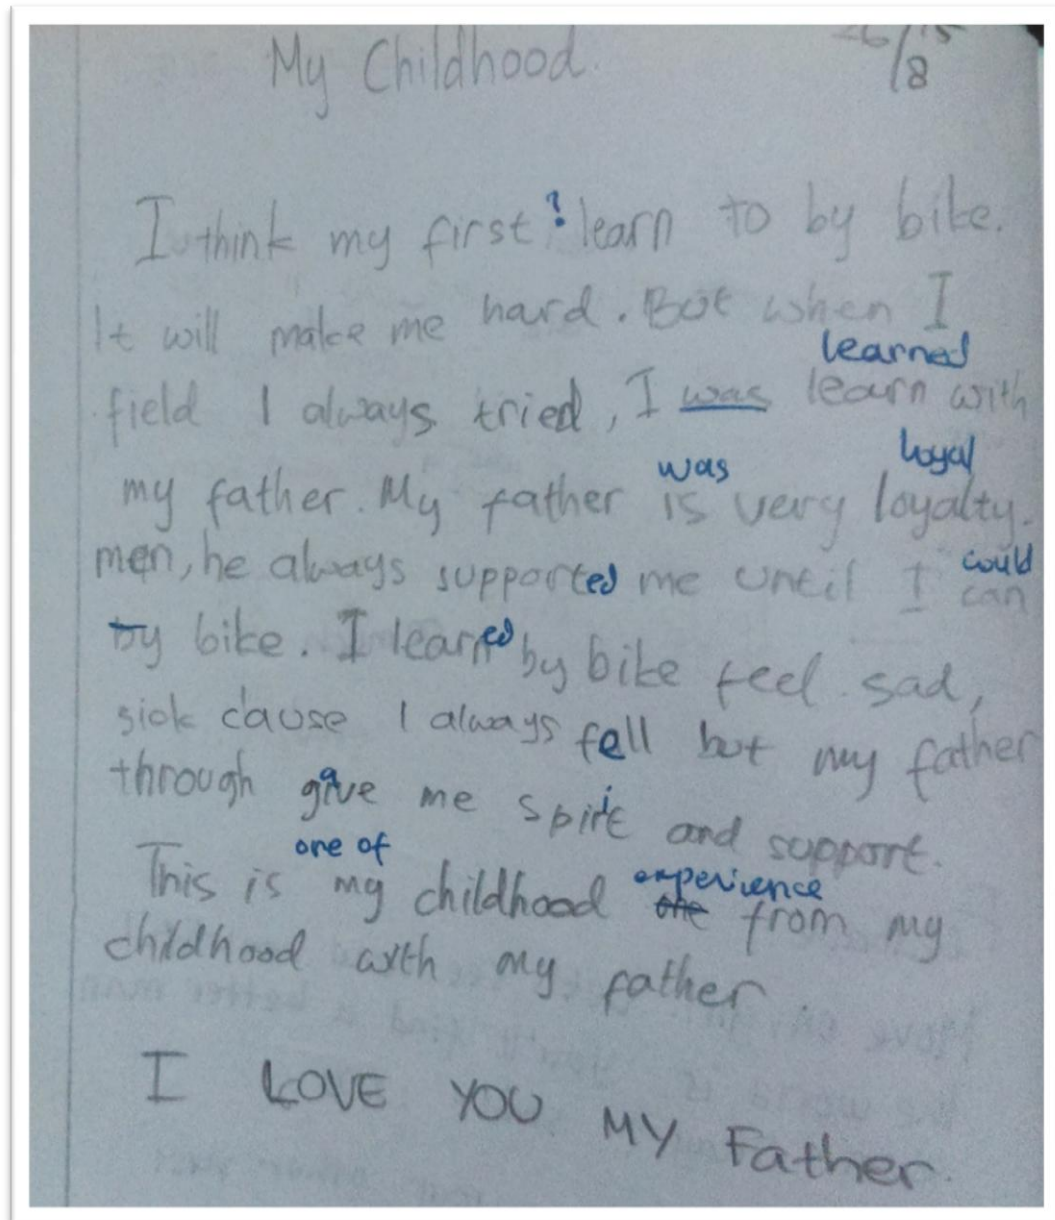 My Childhood.
/8
I think my first ? learn to by bike.
It will make me hard. But when I
learned
field I always tried, I was learn with
was loyal
my father. My father is very loyalty.
men, he always supported me until I can
could
by bike. I learned by bike feel sad,
sick cause I always fell but my father
through give me spirit and support.
one of
This is my childhood from my
experience
childhood with my father.
I LOVE YOU MY Father.